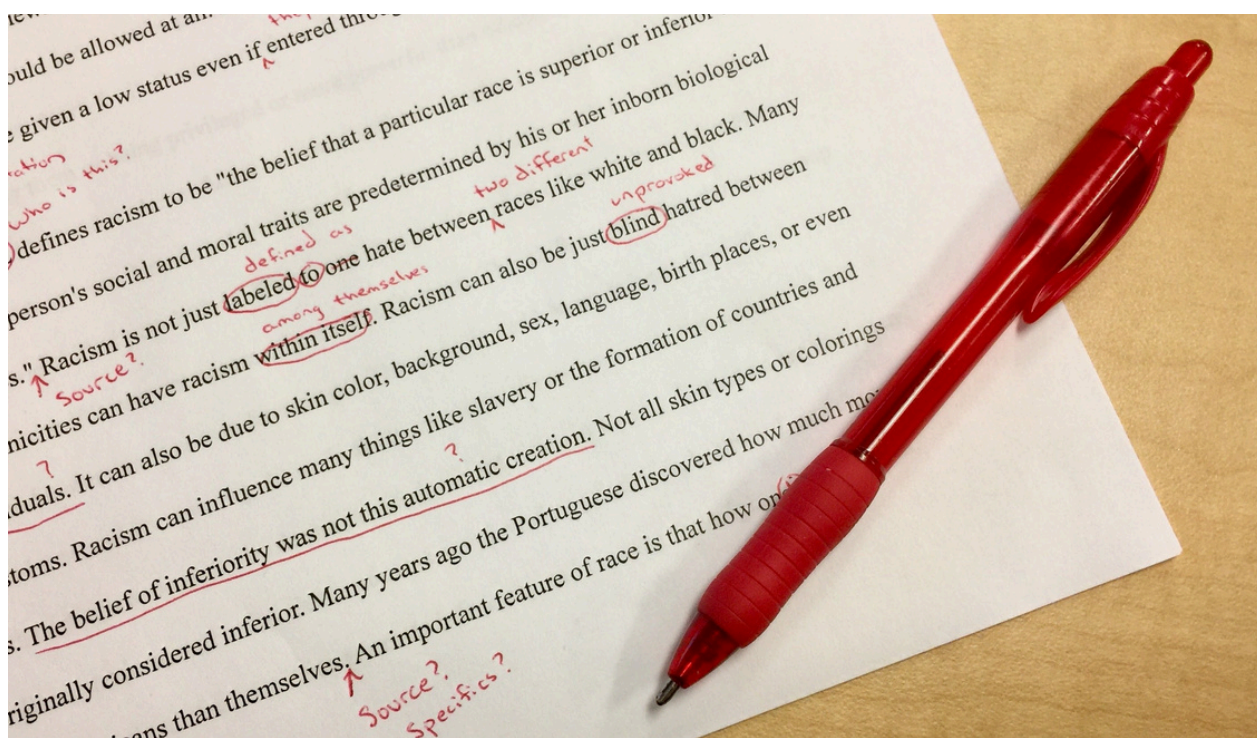 ould be allowed at all.
given a low status even if entered
ration
who is this?
defines racism to be "the belief that a particular race is superior or inferior
person's social and moral traits are predetermined by his or her inborn biological
defined as
two different
s." Racism is not just labeled to one hate between races like white and black. Many
Source?
among themselves
unprovoked
nicities can have racism within itself. Racism can also be just blind hatred between
?
duals. It can also be due to skin color, background, sex, language, birth places, or even
stoms. Racism can influence many things like slavery or the formation of countries and
?
s. The belief of inferiority was not this automatic creation. Not all skin types or colorings
riginally considered inferior. Many years ago the Portuguese discovered how much
ans than themselves. An important feature of race is that how
Source?
Specifics?